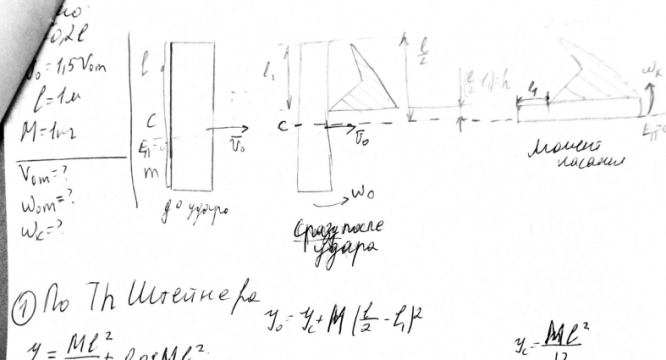 0,2l
v₀ = 1,5 V₀m
l = 1м
M = 1кг
V₀m = ?
ω₀m = ?
ωк = ?
l
C
m
V̄₀
до удара
l₁
C
V̄₀
ω₀
Сразу после
удара
l/2
(l/2 - l₁) = h
l₁
ωк
Момент
касания
① По Th Штейнера
y₀ = yc + M(l/2 - l₁)²
y = Ml²
yc = Ml²/12